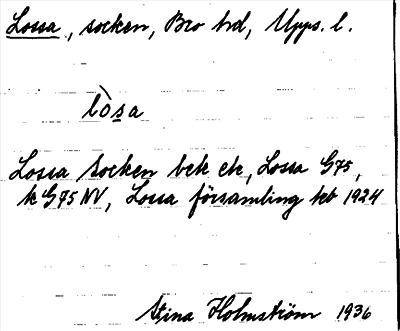 Lossa, socken, Bro hd, Upps. l.
lòsa
Lossa socken bek ek, Lossa G75,
k G75 NV, Lossa församling tkb 1924
Stina Holmström 1936